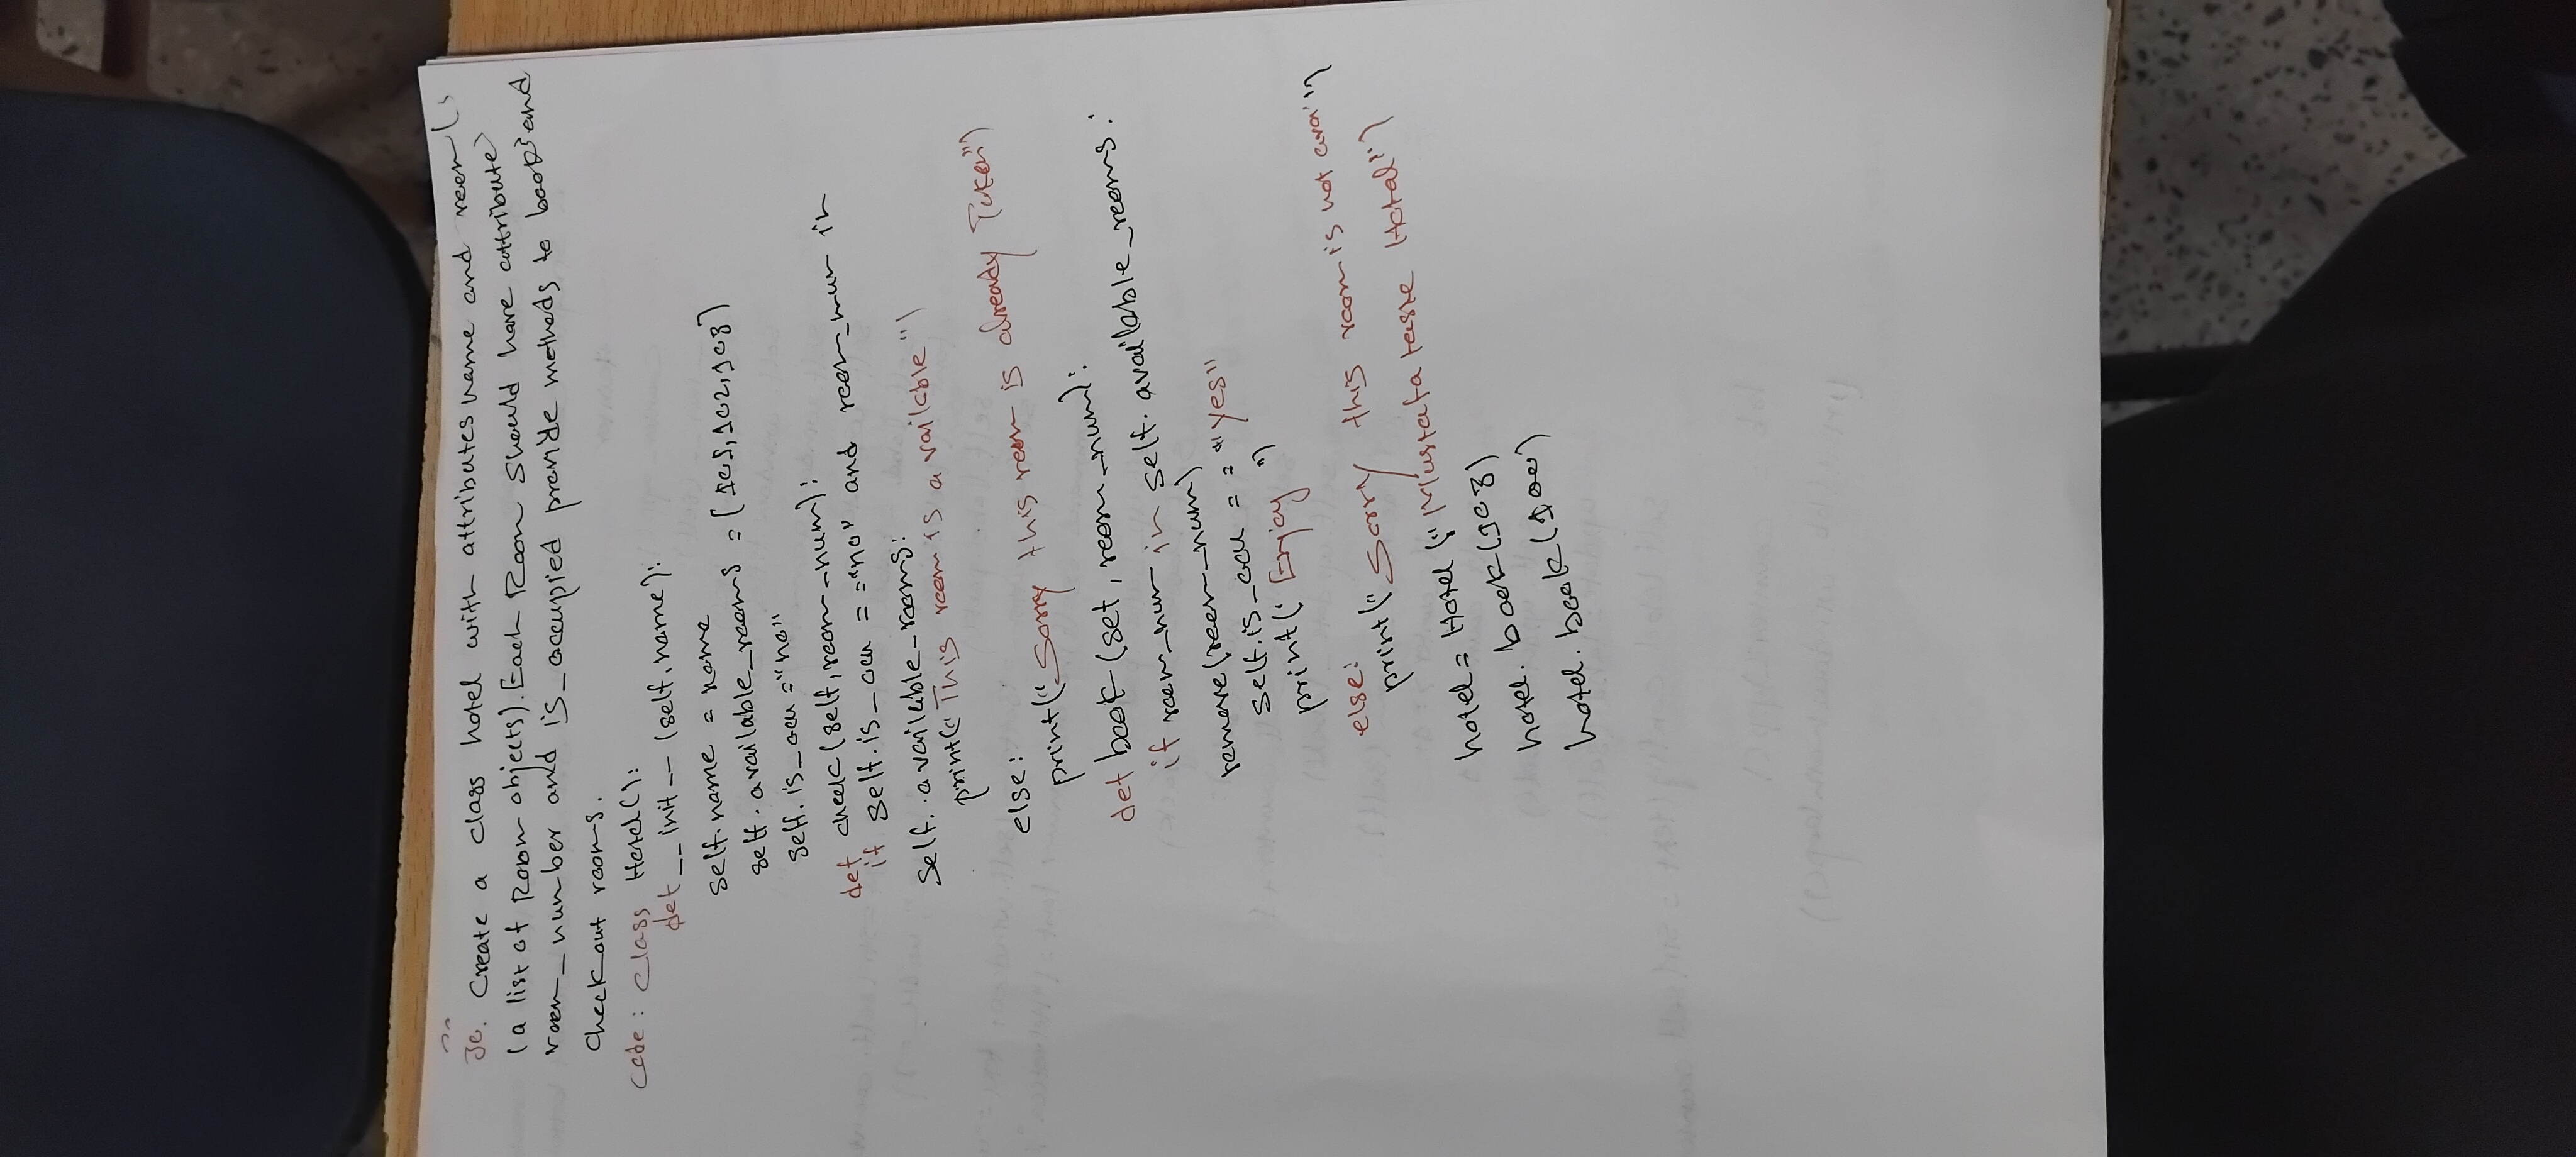 30. Create a class hotel with attributes name and room(s
(a list of Room objects). Each Room should have attribute
room_number and is_occupied provide methods to book and
checkout rooms.
Code: class Hotel():
def __init__(self.name):
self.name = name
self.available_rooms = [101,102,103]
self.is_occu ="no"
def check(self,room_num):
if self.is_occu =="no" and room_num in
self..available_rooms:
print("This room is available")
else:
print("Sorry this room is already Token")
def book(set,room_num):
if room_num in self.available_rooms:
remove(room_num)
self.is_occu =="yes"
print("Enjoy")
else:
print("Sorry this room is not
hotel = Hotel("Mustafa taste Hotal")
hotel.book(103)
hotel.book(100)